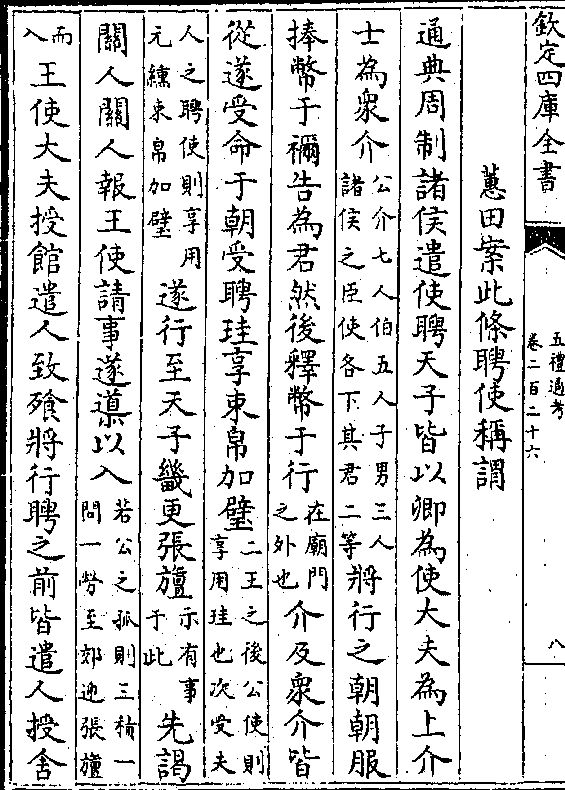 欽定四庫全書
五禮通考
卷二百二十六
八
蕙田案此條聘使稱謂
通典周制諸侯遣使聘天子皆以卿為使大夫為上介
士為衆介
公介七人伯五人子男三人
諸侯之臣使各下其君二等
將行之朝朝服
捧幣于禰告為君然後釋幣于行
在廟門
之外也
介及衆介皆
從遂受命于朝受聘珪享束帛加璧
二王之後公使則
享用珪也次受夫
人之聘使則享用
元纁束帛加璧
遂行至天子畿更張旜
示有事
于此
先謁
關人關人報王使請事遂𨗳以入
若公之孤則三積一
問一勞至郊迎張旜
而
入
王使大夫授館遣人致飱將行聘之前皆遣人授舍